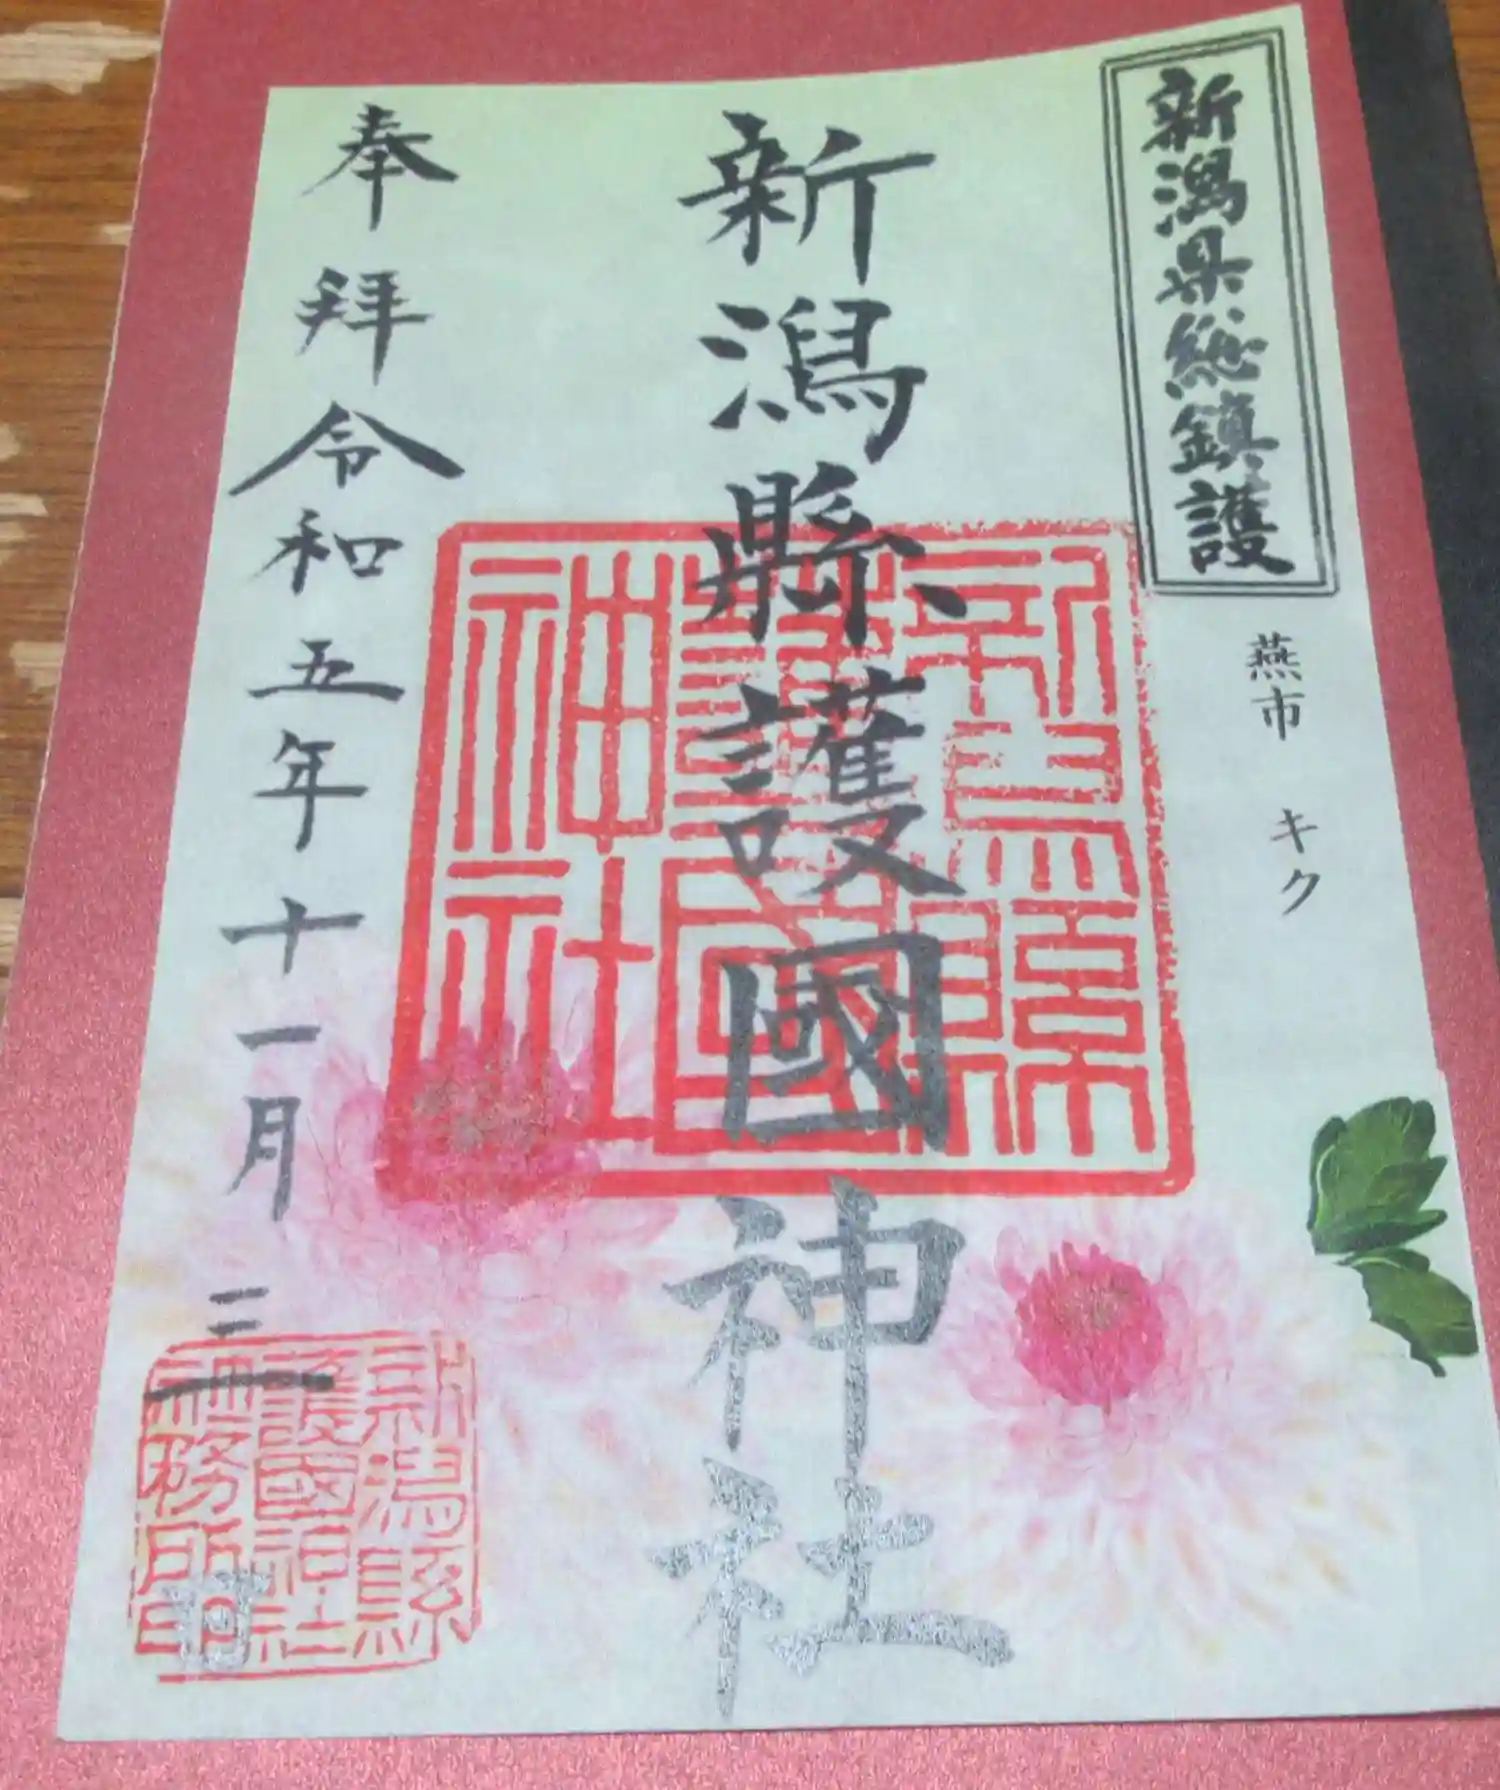 新潟県総鎮護
燕市 キク
新潟縣護國神社
奉拝 令和五年十一月三日
新潟縣
護國
神社
新潟縣
護國神社
社務所印